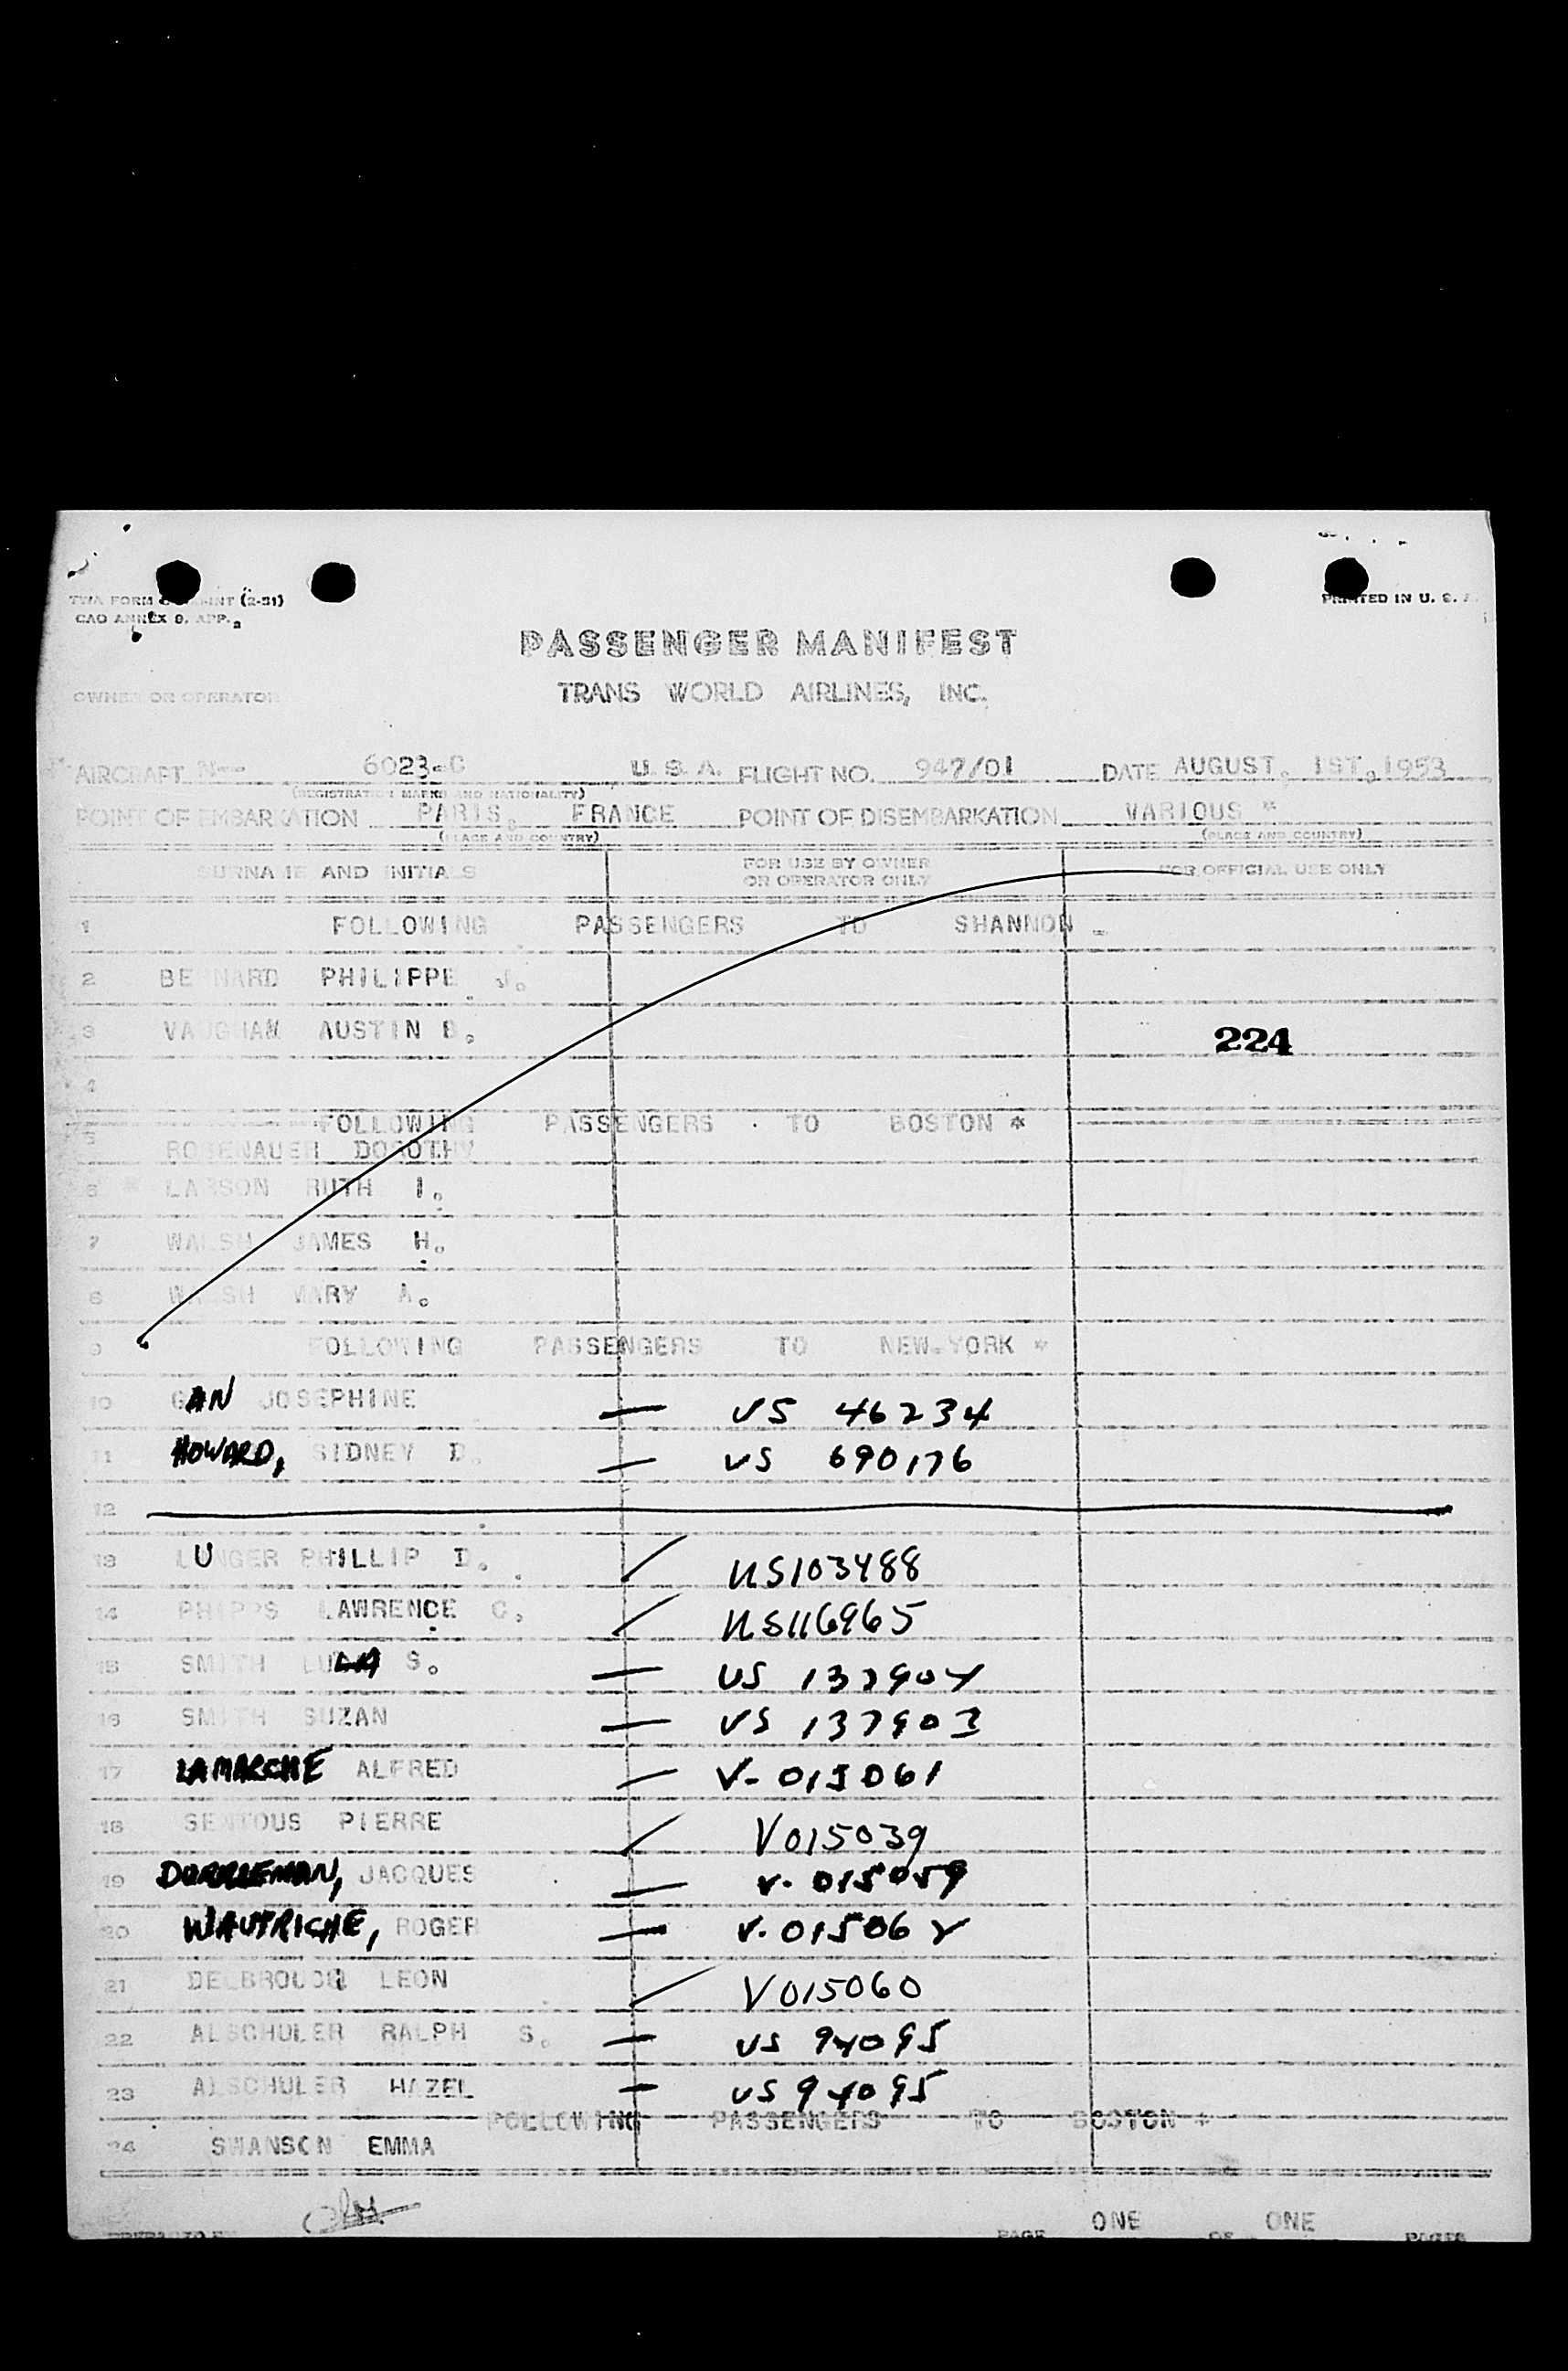 PRINTED IN U. S. A.
CAO ANNEX 9. APP.
PASSENGER MANIFEST
OWNER OR OPERATOR TRANS WORLD AIRLINES, INC.
AIRCRAFT N-- 6023-C U. S. A. FLIGHT NO. 947/01 DATE AUGUST, 1ST, 1953
(REGISTRATION MARKS AND NATIONALITY)
POINT OF EMBARKATION PARIS, FRANCE POINT OF DISEMBARKATION VARIOUS *
(PLACE AND COUNTRY) (PLACE AND COUNTRY)
SURNAME AND INITIALS FOR USE BY OWNER OR OPERATOR ONLY FOR OFFICIAL USE ONLY
1 FOLLOWING PASSENGERS TO SHANNON -
2 BERNARD PHILIPPE J.
3 VAUGHAN AUSTIN B. 224
4
FOLLOWING PASSENGERS TO BOSTON *
5 ROSENAUER DOROTHY
6 * LARSON RUTH I.
7 WALSH JAMES H.
8 WALSH MARY A.
9 FOLLOWING PASSENGERS TO NEW-YORK *
10 GAN JOSEPHINE — US 46234
11 HOWARD, SIDNEY D. — US 690176
12
13 LUNGER PHILLIP D. ✓ US103488
14 PHIPPS LAWRENCE C. ✓ US116965
15 SMITH S. — US 137904
16 SMITH SUZAN — US 137903
17 LAMARCHE ALFRED — V-015061
18 SENTOUS PIERRE ✓ V015039
19 JACQUES — V-015059
20 WAUTRICHE, ROGER — V-01506Y
21 DELBROUCQ LEON ✓ V015060
22 ALSCHULER RALPH S. — US 94095
23 ALSCHULER HAZEL — US 94095
FOLLOWING PASSENGERS TO BOSTON *
24 SWANSON EMMA
PREPARED BY PAGE ONE OF ONE PAGES